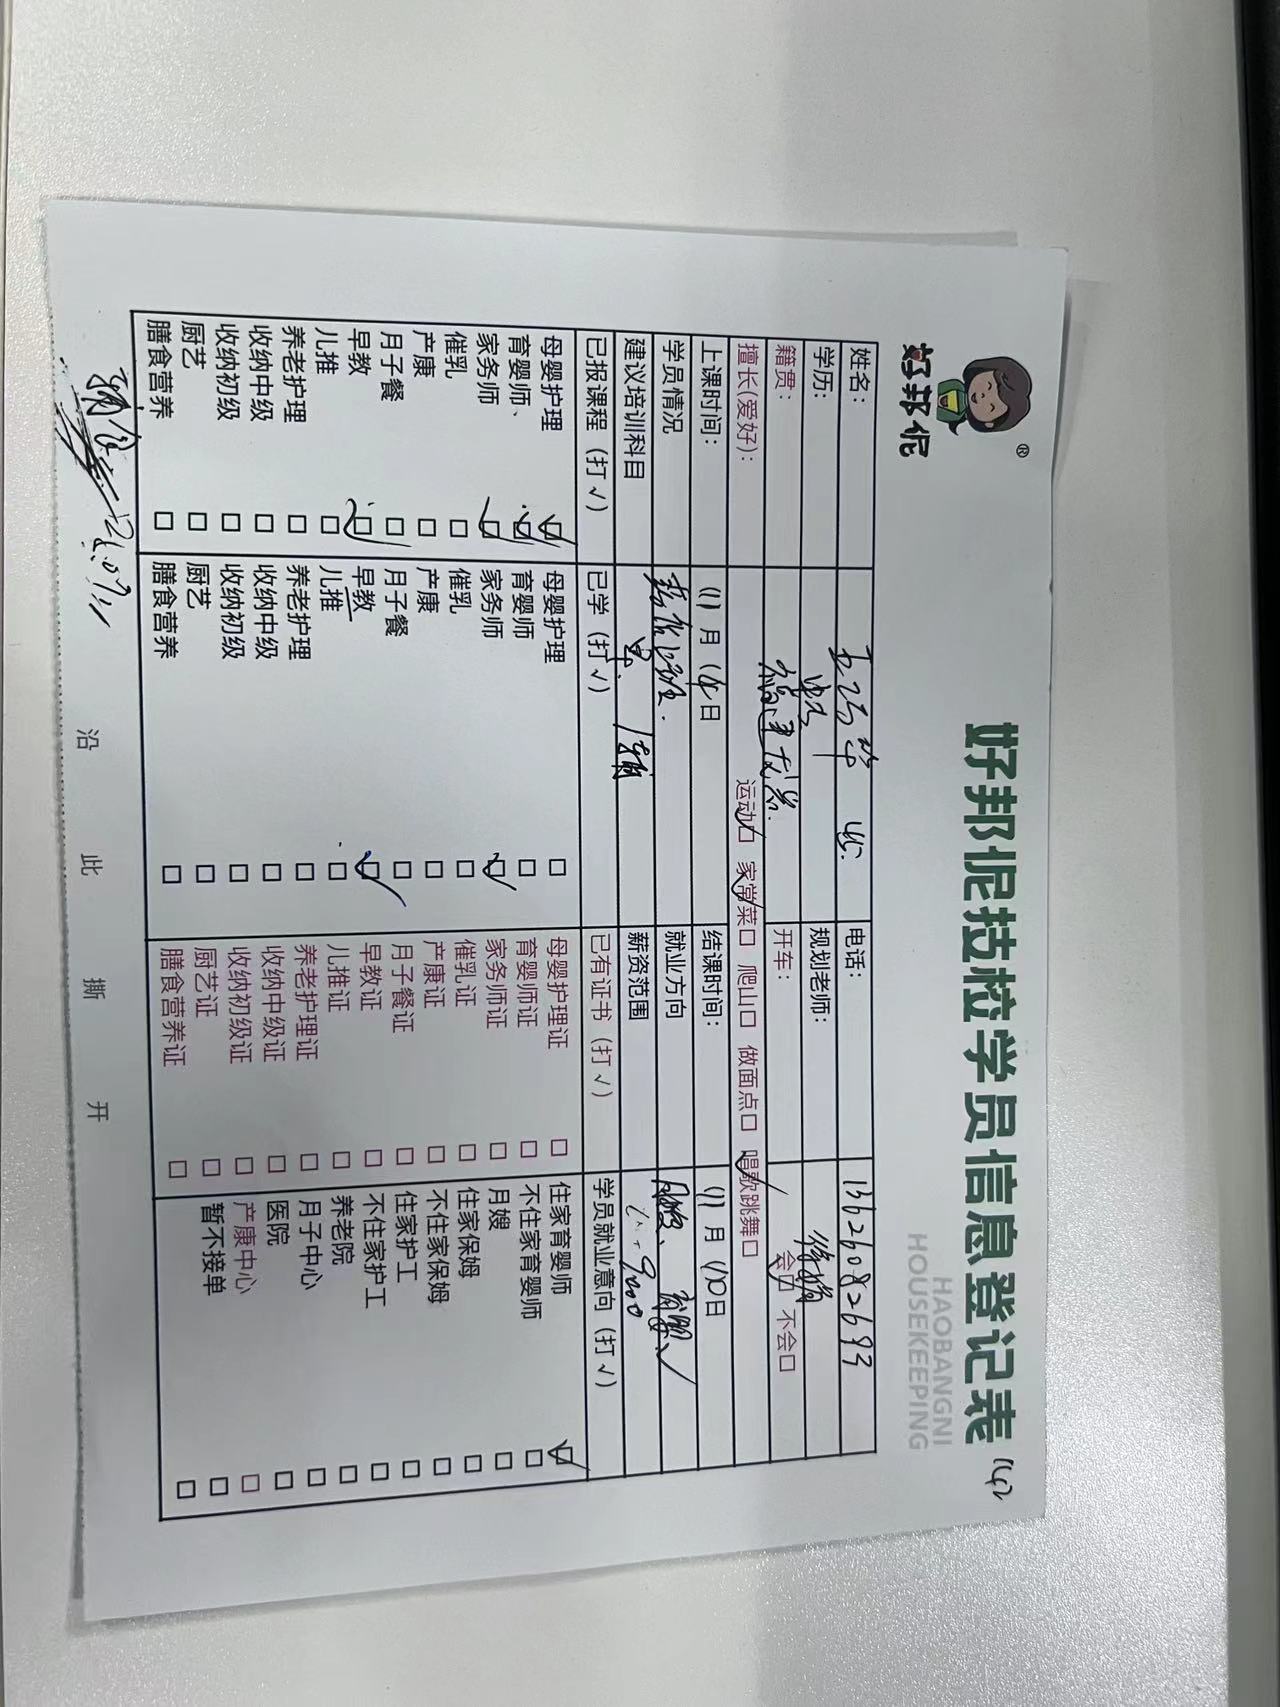 好邦伲®
好邦伲技校学员信息登记表 (12)
HAOBANGNI
HOUSEKEEPING
姓名： 电话： 13626082693
学历： 规划老师：
籍贯： 福建龙岩 开车： 会☑ 不会□
擅长(爱好)： 运动☑ 家常菜☑ 爬山□ 做面点□ 唱歌跳舞☑
上课时间： 11月 14日 结课时间： 11月 10日
学员情况 就业方向 育婴
建议培训科目 薪资范围 9000
已报课程（打√） 已学（打√） 已有证书（打√） 学员就业意向（打√）
母婴护理 ☑ 母婴护理 □ 母婴护理证 □ 住家育婴师 ☑
育婴师、 ☑ 育婴师 □ 育婴师证 □ 不住家育婴师 □
家务师 ☑ 家务师 ☑ 家务师证 □ 月嫂 □
催乳 □ 催乳 □ 催乳证 □ 住家保姆 □
产康 □ 产康 □ 产康证 □ 不住家保姆 □
月子餐 □ 月子餐 □ 月子餐证 □ 住家护工 □
早教 ☑ 早教 ☑ 早教证 □ 不住家护工 □
儿推 □ 儿推 □ 儿推证 □ 养老院 □
养老护理 □ 养老护理 □ 养老护理证 □ 月子中心 □
收纳中级 □ 收纳中级 □ 收纳中级证 □ 医院 □
收纳初级 □ 收纳初级 □ 收纳初级证 □ 产康中心 □
厨艺 □ 厨艺 □ 厨艺证 □ 暂不接单 □
膳食营养 □ 膳食营养 □ 膳食营养证 □ □
沿 此 撕 开